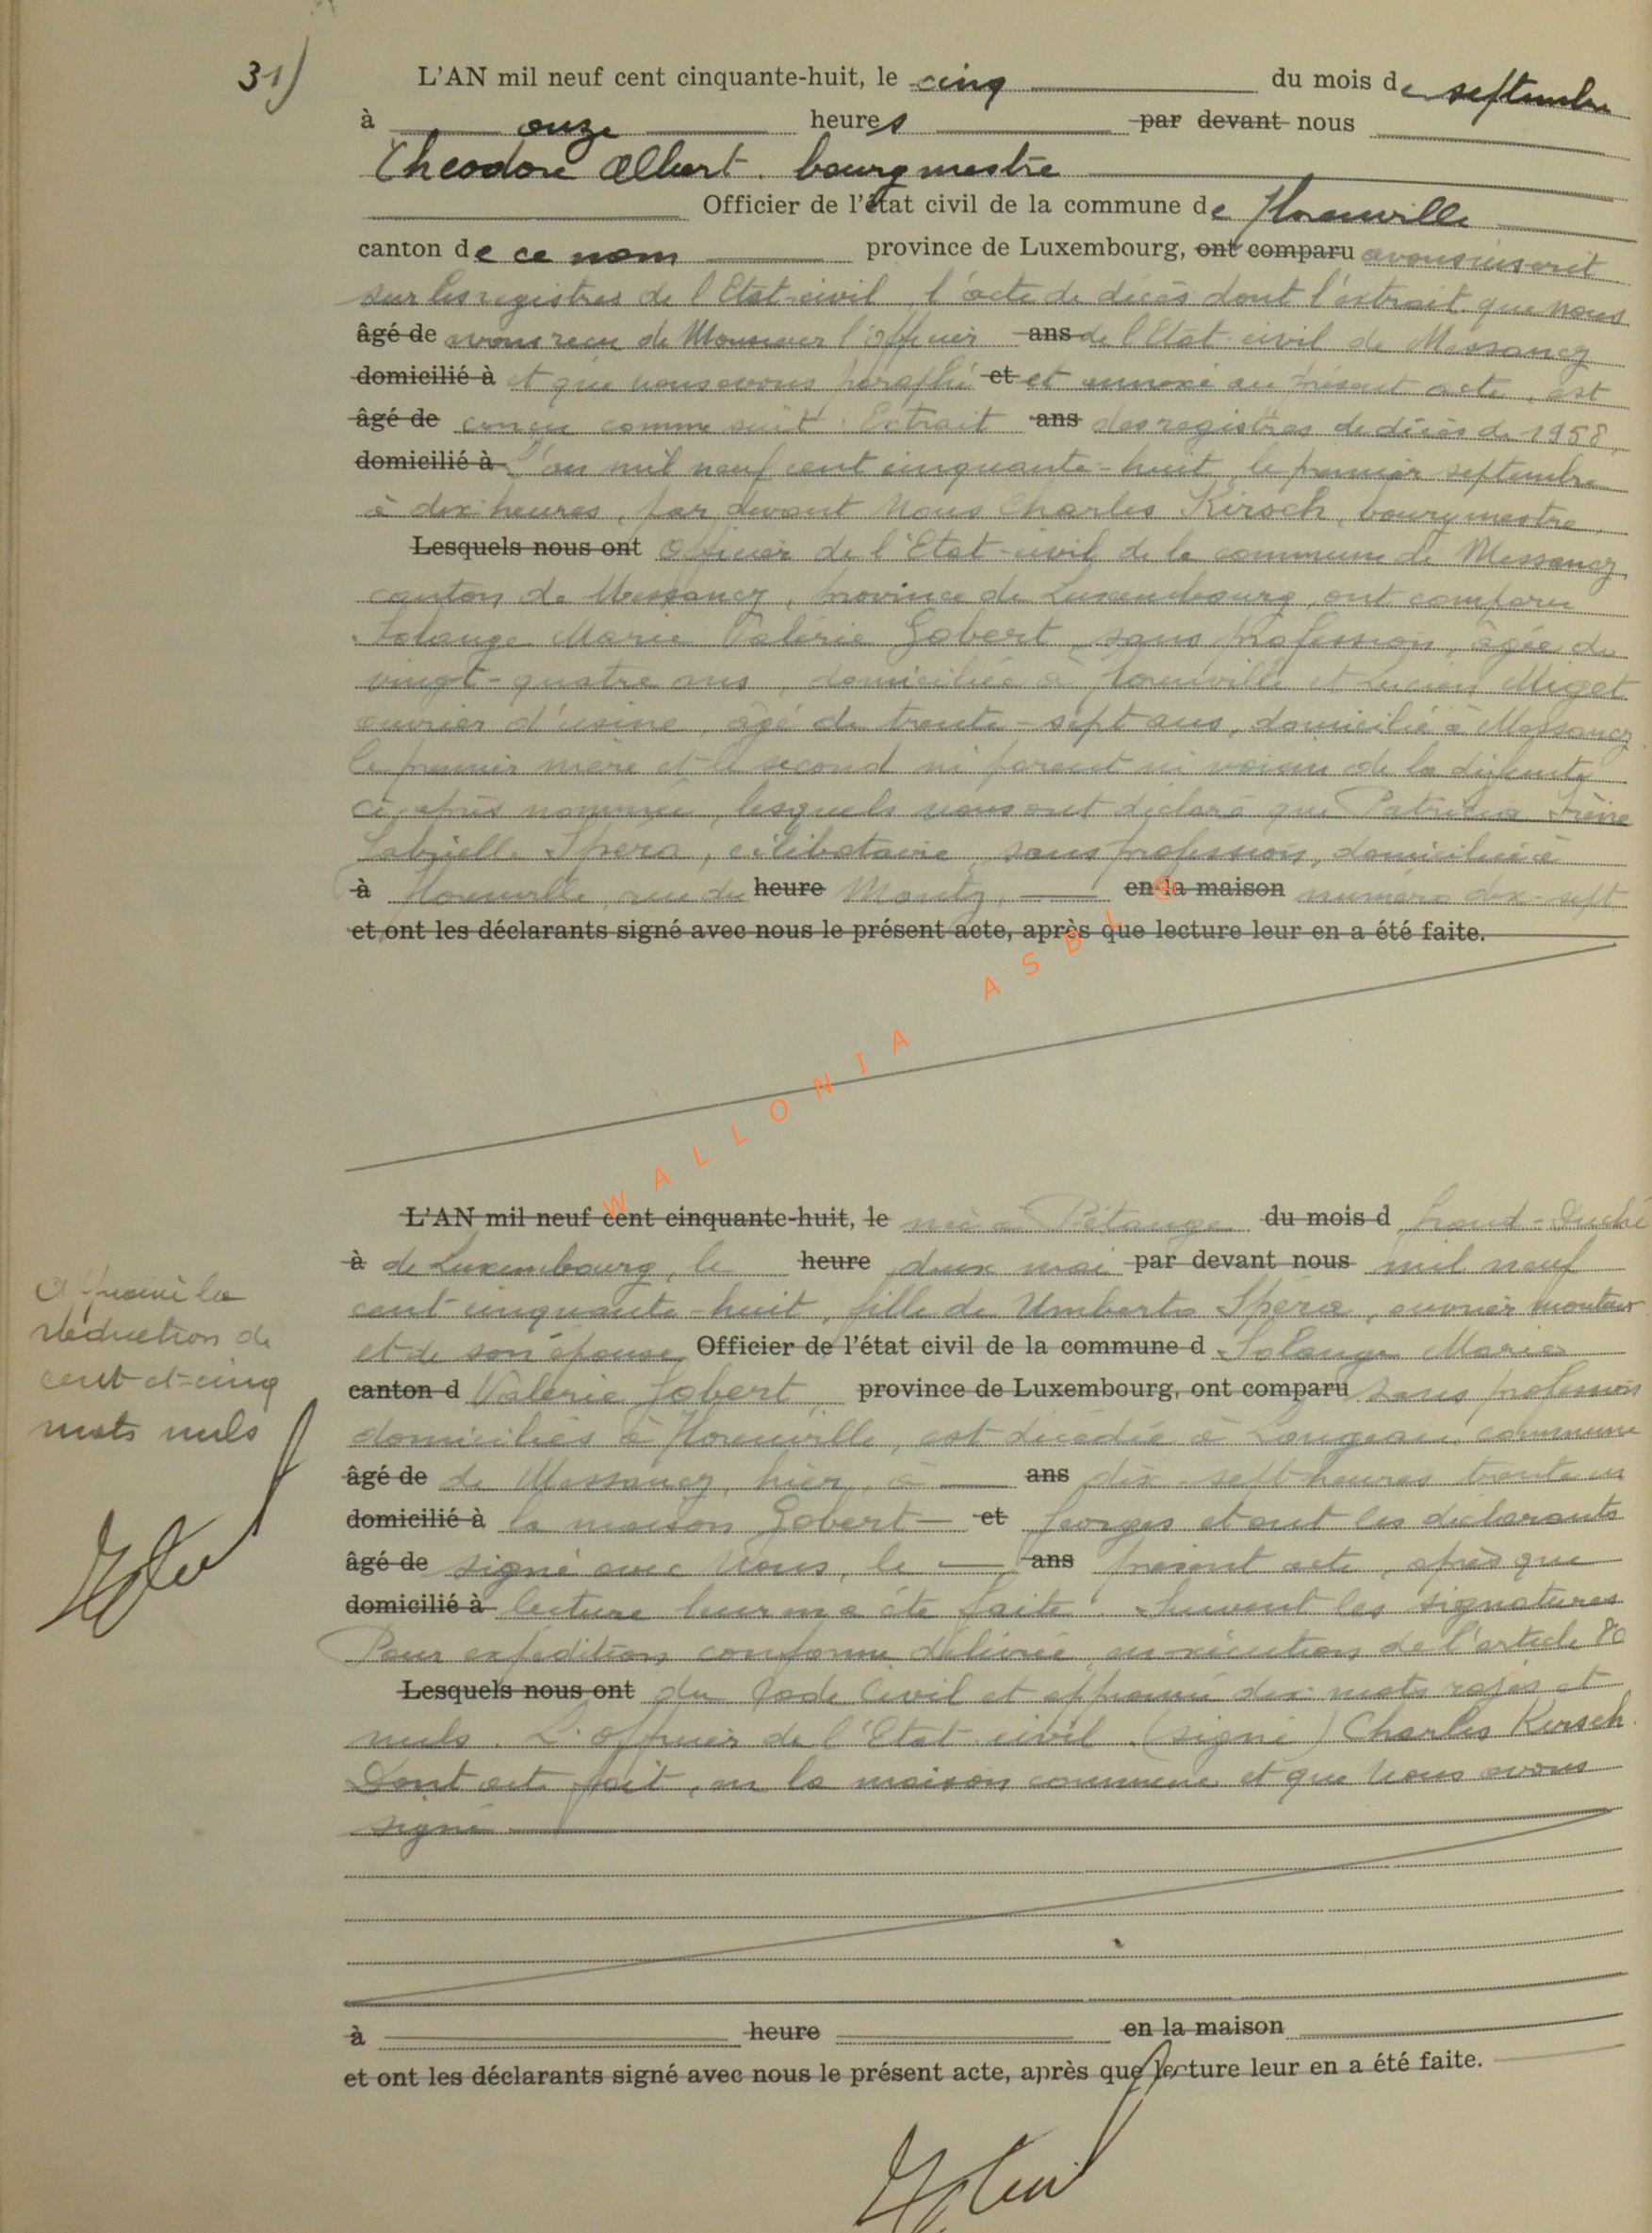 31)
L'AN mil neuf cent cinquante-huit, le cinq du mois de septembre
à onze heures par devant nous
Théodore Albert. bourgmestre
Officier de l'état civil de la commune de Florenville
canton de ce nom province de Luxembourg, ont comparu avons inscrit
sur les registres de l'Etat-civil, l'acte de décès dont l'extrait que nous
âgé de avons reçu de Monsieur l'officier ans de l'Etat-civil de Messancy
domicilié à et que nous avons paraphé et et annexé au présent acte, est
âgé de conçu comme suit: Extrait ans des registres de décès de 1958,
domicilié à L'an mil neuf cent cinquante-huit, le premier septembre
à dix heures, par devant Nous Charles Kirsch, bourgmestre,
Lesquels nous ont Officier de l'Etat-civil de la commune de Messancy
canton de Messancy, province de Luxembourg, ont comparu
Solange Marie Valérie Gobert, sans profession, âgée de
vingt-quatre ans, domiciliée à Florenville et Lucien Miget
ouvrier d'usine, âgé de trente-sept ans, domicilié à Messancy
le premier mère et le second ni parent ni voisin de la défunte
ci-après nommée, lesquels nous ont déclaré que Patricia Irène
Gabrielle Spera, célibataire, sans profession, domiciliée à
à Florenville, rue du heure Montz, en la maison numéro dix-sept
et ont les déclarants signé avec nous le présent acte, après que lecture leur en a été faite.
WALLONIA ASBL ©
L'AN mil neuf cent cinquante-huit, le née à Pétange du mois d Grand-Duché
à de Luxembourg, le heure deux mai par devant nous mil neuf
cent cinquante-huit, fille de Umberto Spera, ouvrier monteur
et de son épouse Officier de l'état civil de la commune d Solange Marie
canton d Valérie Gobert, province de Luxembourg, ont comparu sans profession
domiciliés à Florenville, est décédée à Longeau, commune
âgé de de Messancy, hier, à ans dix-sept heures trente en
domicilié à la maison Gobert et Georges et ont les déclarants
âgé de signé avec Nous, le ans présent acte, après que
domicilié à lecture leur en a été faite. Suivent les signatures
Pour expédition conforme délivrée en exécution de l'article 80
Lesquels nous ont du Code Civil et approuvé dix mots rayés et
nuls. L'officier de l'Etat-civil. (signé) Charles Kirsch.
Dont acte fait, en la maison commune et que Nous avons
signé
à heure en la maison
et ont les déclarants signé avec nous le présent acte, après que lecture leur en a été faite.
Approuvé la
radiation de
cent-et-cinq
mots nuls